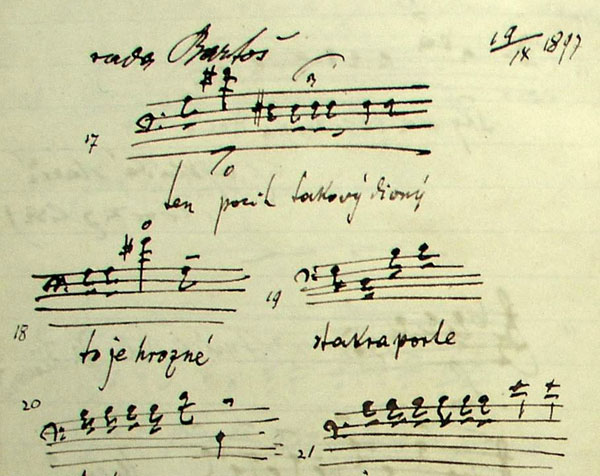 rada Bartoš 19/IX 1897
17
ten pocit takový divný
18 19
to je hrozné stakraporte
20 21